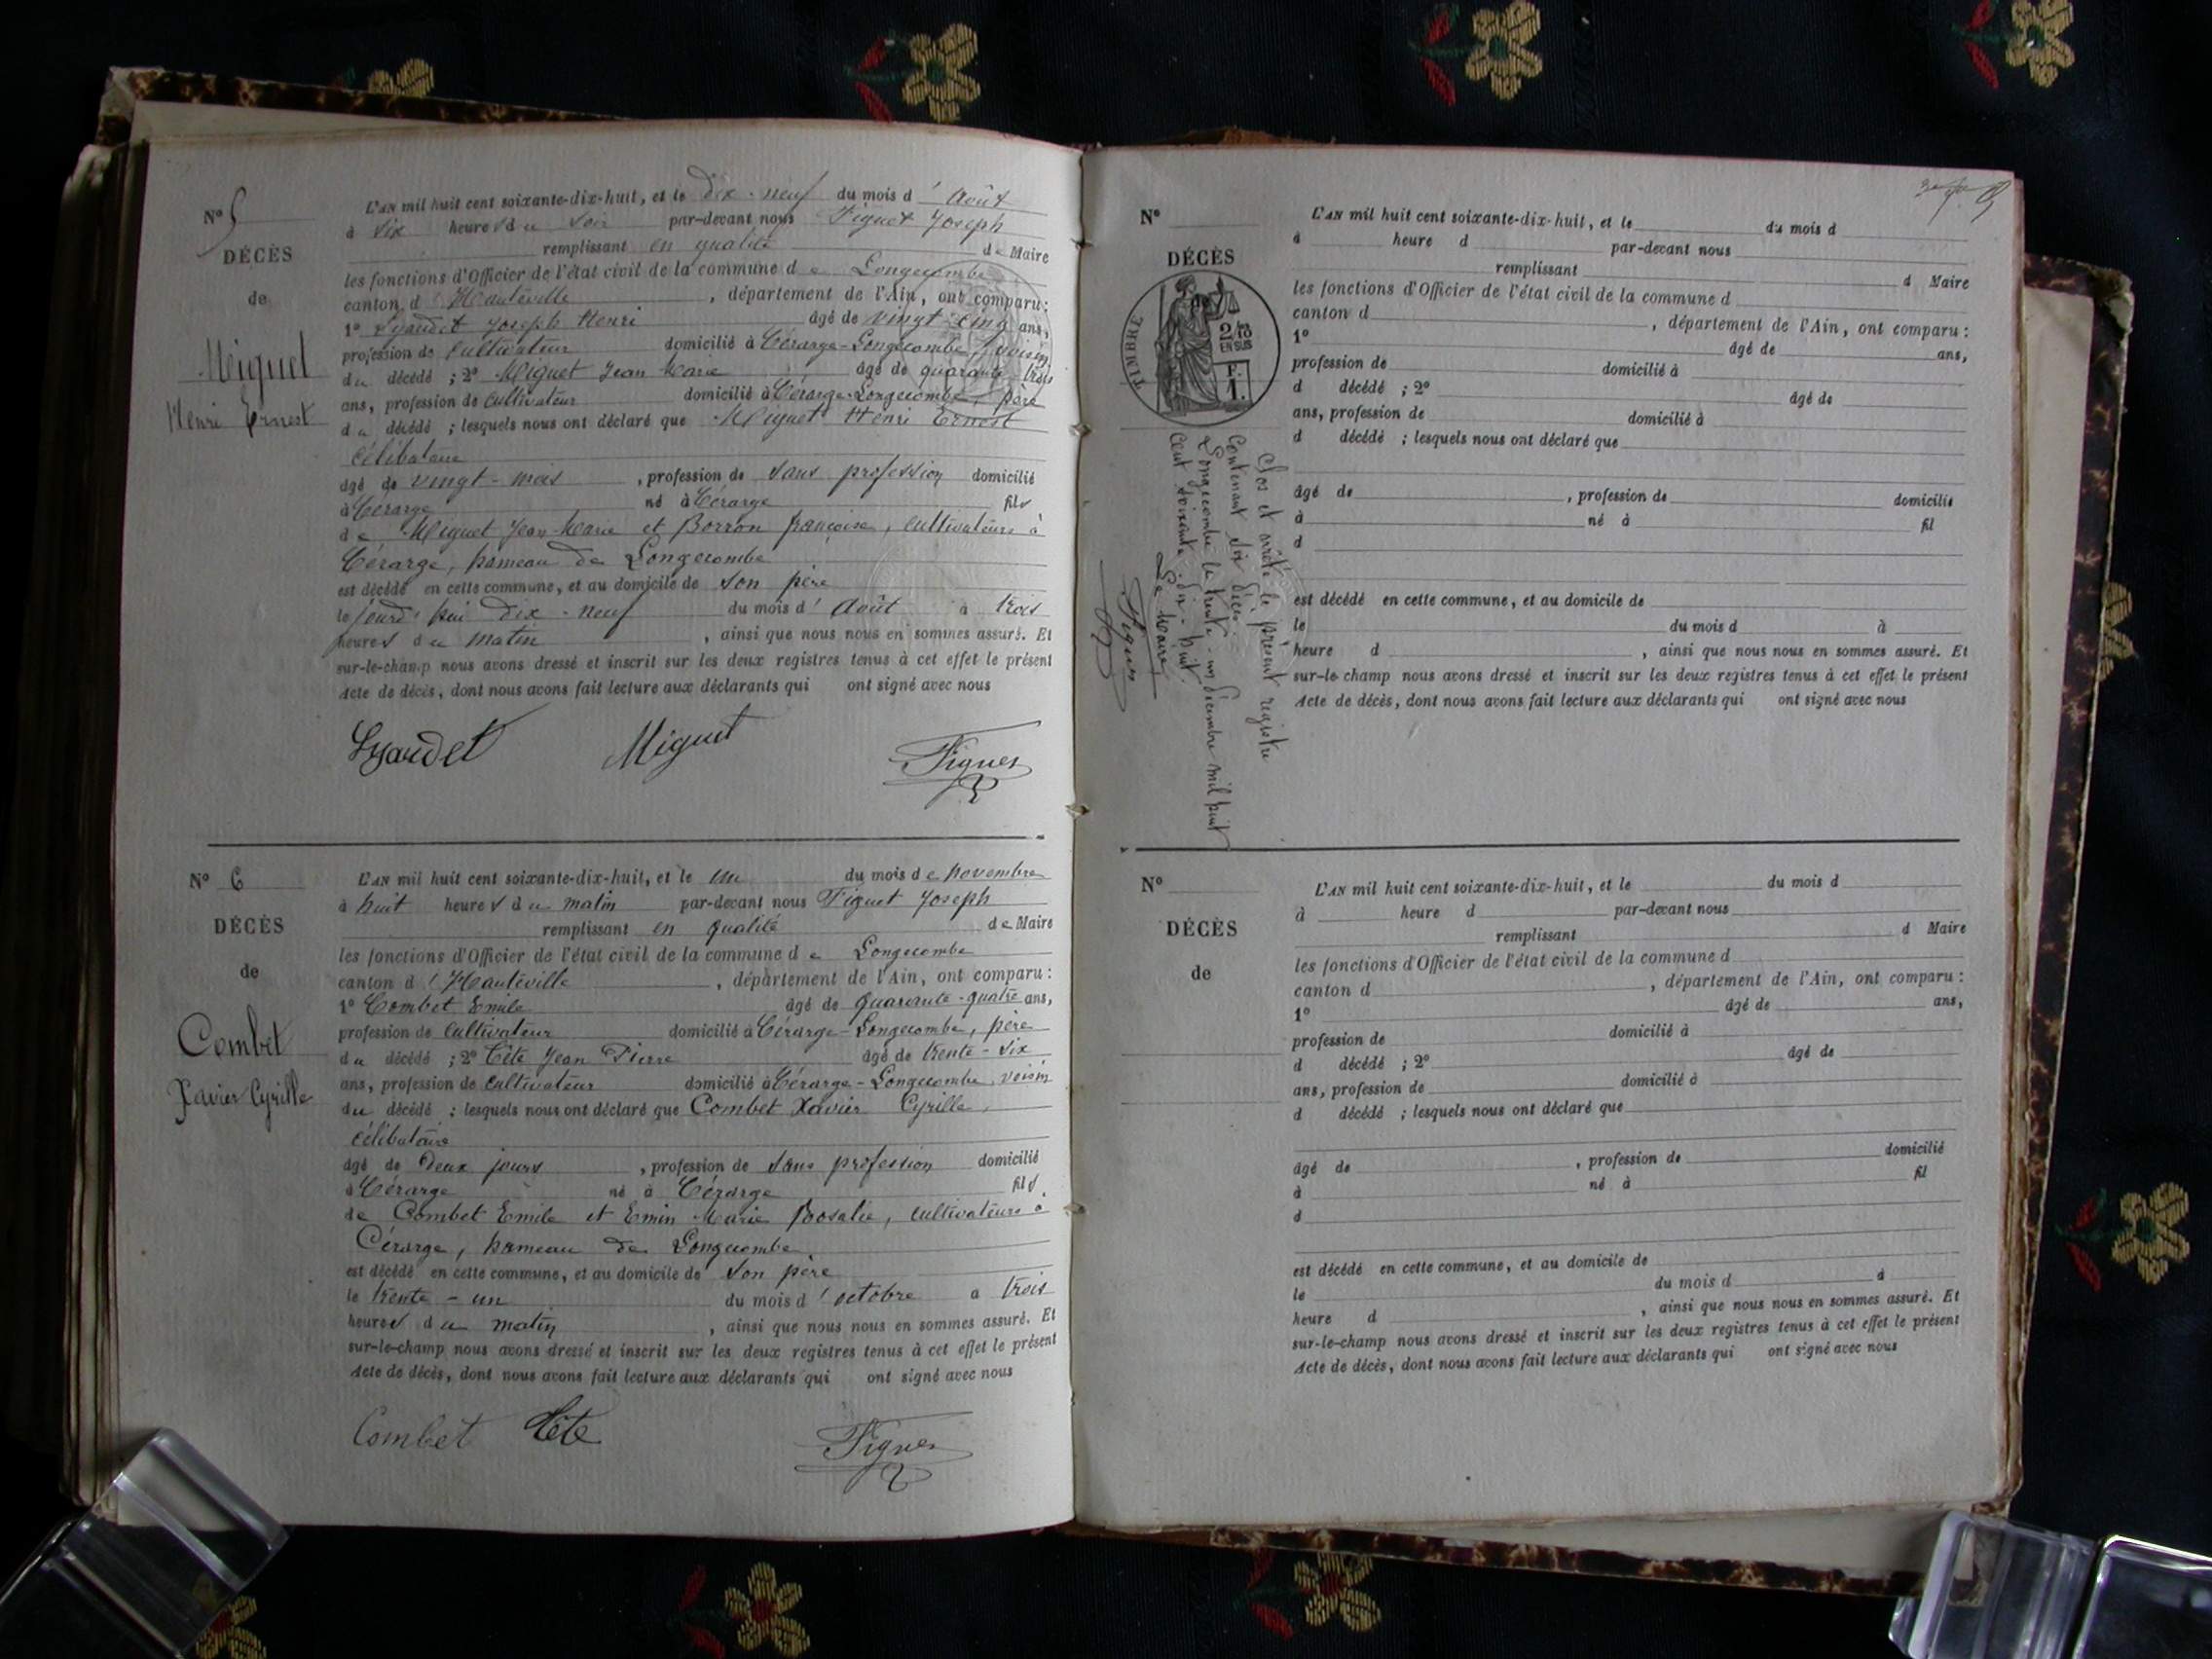 N° 5
DÉCÈS
de
Miguet
Henri Ernest
L'AN mil huit cent soixante-dix-huit, et le dix-neuf du mois d'Août
à six heures du soir par-devant nous Figuet Joseph
remplissant en qualité de Maire
les fonctions d'Officier de l'état civil de la commune de Longecombe
canton d'Hauteville, département de l'Ain, ont comparu :
1° Lyaudet Joseph Henri âgé de vingt cinq ans,
profession de cultivateur domicilié à Cérarge-Longecombe, voisin
du décédé ; 2° Miguet Jean Marie âgé de quarante trois
ans, profession de cultivateur domicilié à Cérarge-Longecombe, père
du décédé ; lesquels nous ont déclaré que Miguet Henri Ernest
célibataire
âgé de vingt-mois, profession de sans profession domicilié
à Cérarge né à Cérarge fils
de Miguet Jean-Marie et Borron françoise, cultivateurs à
Cérarge, hameau de Longecombe
est décédé en cette commune, et au domicile de son père
le jourd'hui dix-neuf du mois d'Août à trois
heures du matin, ainsi que nous nous en sommes assuré. Et
sur-le-champ nous avons dressé et inscrit sur les deux registres tenus à cet effet le présent
Acte de décès, dont nous avons fait lecture aux déclarants qui ont signé avec nous
Lyaudet Miguet Figuet
N° 6
DÉCÈS
de
Combet
Xavier Cyrille
L'AN mil huit cent soixante-dix-huit, et le un du mois de novembre
à huit heures du matin par-devant nous Figuet Joseph
remplissant en qualité de Maire
les fonctions d'Officier de l'état civil de la commune de Longecombe
canton d'Hauteville, département de l'Ain, ont comparu :
1° Combet Emile âgé de quarante-quatre ans,
profession de cultivateur domicilié à Cérarge-Longecombe, père
du décédé ; 2° Tête Jean Pierre âgé de trente-six
ans, profession de cultivateur domicilié à Cérarge-Longecombe, voisin
du décédé ; lesquels nous ont déclaré que Combet Xavier Cyrille,
célibataire
âgé de deux jours, profession de sans profession domicilié
à Cérarge né à Cérarge fils
de Combet Emile et Emin Marie Rosalie, cultivateurs à
Cérarge, hameau de Longecombe,
est décédé en cette commune, et au domicile de son père
le trente-un du mois d'octobre à trois
heures du matin, ainsi que nous nous en sommes assuré. Et
sur-le-champ nous avons dressé et inscrit sur les deux registres tenus à cet effet le présent
Acte de décès, dont nous avons fait lecture aux déclarants qui ont signé avec nous
Combet Tête Figuet
N°
DÉCÈS
de
TIMBRE
2/10 EN SUS
F. 1.
Clos et arrêté le présent registre
contenant six décès.
Longecombe le trente-un Décembre mil huit
cent soixante-dix-huit.
Le Maire,
Figuet
L'AN mil huit cent soixante-dix-huit, et le du mois d
à heure d par-devant nous
remplissant d Maire
les fonctions d'Officier de l'état civil de la commune d
canton d , département de l'Ain, ont comparu :
1° âgé de ans,
profession de domicilié à
d décédé ; 2° âgé de
ans, profession de domicilié à
d décédé ; lesquels nous ont déclaré que
âgé de , profession de domicilié
à né à fil
d
est décédé en cette commune, et au domicile de
le du mois d à
heure d , ainsi que nous nous en sommes assuré. Et
sur-le-champ nous avons dressé et inscrit sur les deux registres tenus à cet effet le présent
Acte de décès, dont nous avons fait lecture aux déclarants qui ont signé avec nous
N°
DÉCÈS
de
L'AN mil huit cent soixante-dix-huit, et le du mois d
à heure d par-devant nous
remplissant d Maire
les fonctions d'Officier de l'état civil de la commune d
canton d , département de l'Ain, ont comparu :
1° âgé de ans,
profession de domicilié à
d décédé ; 2° âgé de
ans, profession de domicilié à
d décédé ; lesquels nous ont déclaré que
âgé de , profession de domicilié
à né à fil
d
est décédé en cette commune, et au domicile de
le du mois d à
heure d , ainsi que nous nous en sommes assuré. Et
sur-le-champ nous avons dressé et inscrit sur les deux registres tenus à cet effet le présent
Acte de décès, dont nous avons fait lecture aux déclarants qui ont signé avec nous